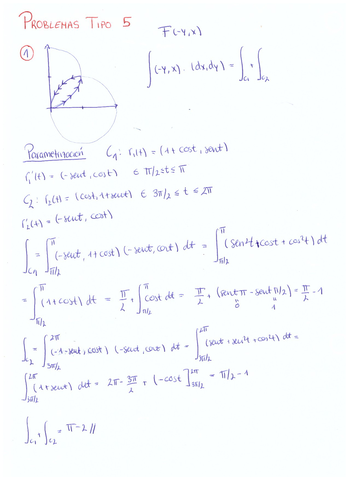 PROBLEMAS TIPO 5
F(-y,x)
①
∫(-y,x)·(dx,dy) = ∫C₁ + ∫C₂
Parametrización C₁: r₁(t) = (1+cost, sent)
r₁'(t) = (-sent, cost) ∈ π/2 ≤ t ≤ π
C₂: r₂(t) = (cost, 1+sent) ∈ 3π/2 ≤ t ≤ 2π
r₂'(t) = (-sent, cost)
∫C₁ = ∫π/2^π (-sent, 1+cost)(-sent, cost) dt = ∫π/2^π (sen²t + cost + cos²t) dt
= ∫π/2^π (1+cost) dt = π/2 + ∫π/2^π cost dt = π/2 + (sent π - sent π/2) = π/2 - 1
0 1
∫C₂ = ∫3π/2^2π (-1-sent, cost)(-sent, cost) dt = ∫3π/2^2π (sent + sen²t + cos²t) dt =
∫3π/2^2π (1+sent) dt = 2π - 3π/2 + (-cost]3π/2^2π = π/2 - 1
∫C₁ + ∫C₂ = π - 2 //